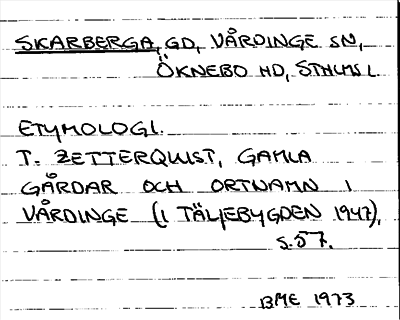 SKARBERGA, GD, VÅRDINGE SN,
ÖKNEBO HD, STHLMS L.
ETYMOLOGI.
T. ZETTERQUIST, GAMLA
GÅRDAR OCH ORTNAMN I
VÅRDINGE (I TÄLJEBYGDEN 1947),
S. 57.
BME 1973